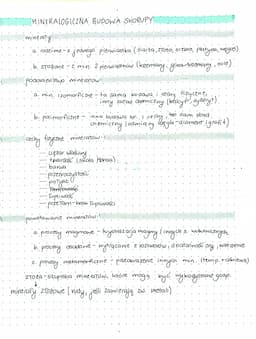 MINERALOGICZNA BUDOWA SKORUPY
minerały
a. rodzime - z jednego pierwiastka (siarka, złoto, platyna,
b. złożone - z min. 2 pierwiastków (krzemiany,
podobieństwo minerałów
a. min. izomorficzne - ta sama budowa i cechy fizyczne,
inny skład chemiczny (kalcyt,
b. polimorficzne - inna budowa kr. i cechy, ten sam skład
chemiczny (odmiany węgla - diament, grafit)
cechy fizyczne minerałów:
— ciężar właściwy
— twardość (skala Mohsa)
— barwa
— przezroczystość
— połysk
— łupliwość
— przełam - brak łupliwości
powstawanie minerałów:
a. procesy magmowe - krystalizacja magmy
b. procesy osadowe - wytrącanie z roztworów, działalność org., wietrzenie
c. procesy metamorficzne - przeobrażenie innych min. (temp. + ciśnienie)
złoża - skupiska minerałów, które mogą być wykorzystywane gosp.
minerały złożowe (rudy, jeśli zawierają zw. metali)